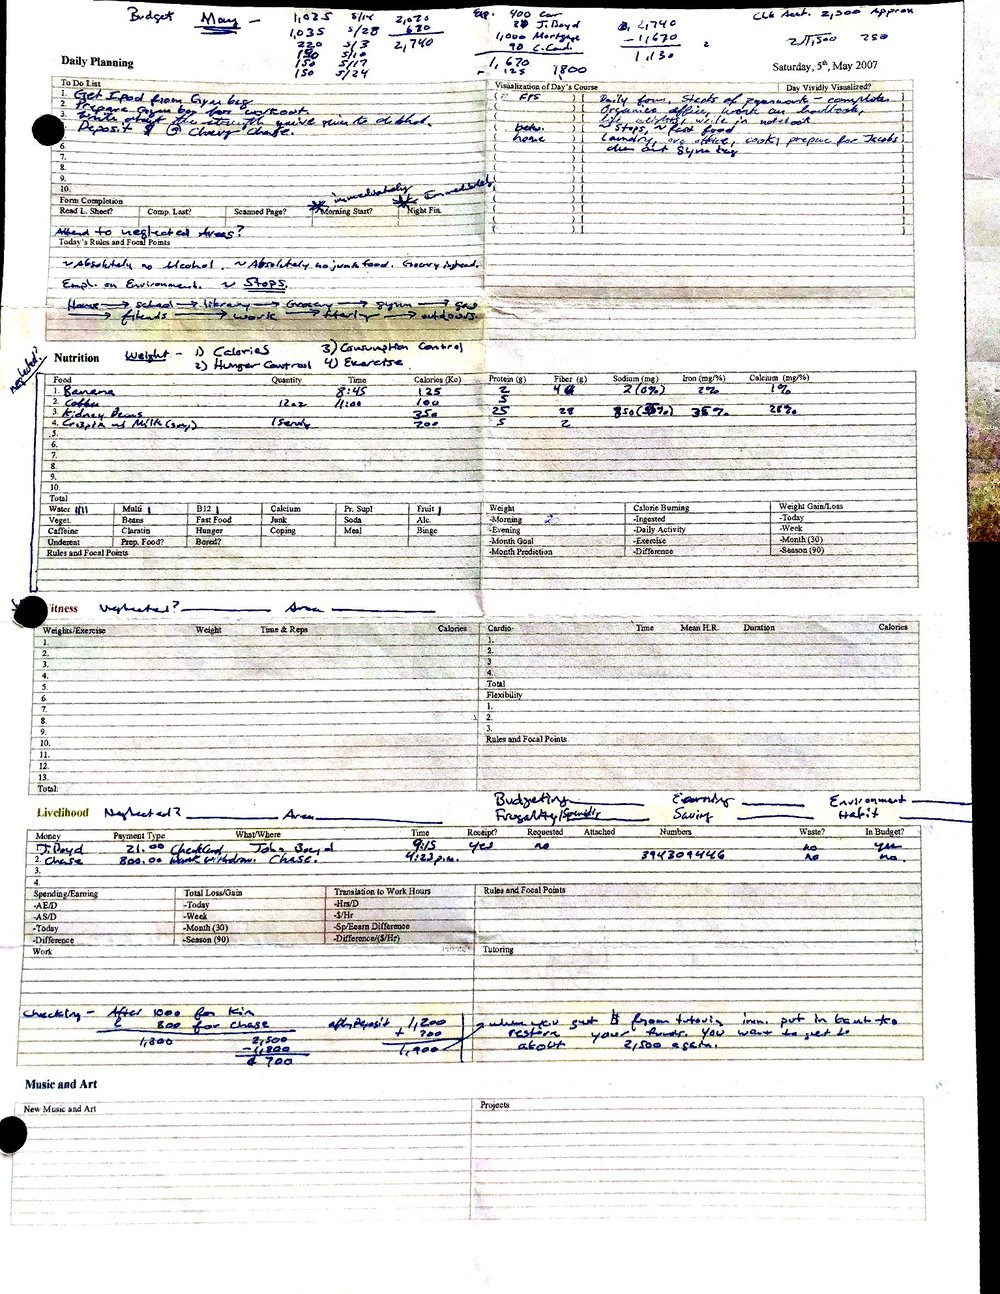 Budget May - 1,035 5/14 2,070 Exp. 400 car 2,740 Chk Acct. 2,500 Approx
1,035 5/28 670 J. Boyd - 1,670
220 5/3 2,740 1,000 Mortgage 1,130
150 5/10 90 C. Card
150 5/17 1,670
150 5/24 125 1800
Daily Planning Saturday, 5th, May 2007
To Do List
1. Get Ipod from Gym bag
2. Prepare Gym bag for workout.
3. Write about the strength you've given to alcohol.
Deposit $ @ Chase.
6.
7.
8.
9.
10.
Visualization of Day's Course Day Vividly Visualized?
FPS Daily form, Stacks of paperwork - complete.
Organize office, work on handbook,
lift weights, write in notebook
betw. ~ Stops, ~ fast food
home Laundry, org office, cook, prepare for Jacobs
clean out gym bag
Form Completion immediately Immediately
Read L. Sheet? Comp. Last? Scanned Page? Morning Start? Night Fin.
Attend to neglected Areas?
Today's Rules and Focal Points
~ Absolutely no alcohol. ~ Absolutely no junk food. Grocery instead.
Emph. on Environment. ~ Stops.
Home → school → library → Grocery → gym → gas
→ friends → work → tutoring → outdoors.
neglected?
Nutrition Weight - 1) Calories 3) Consumption Control
2) Hunger Control 4) Exercise
Food Quantity Time Calories (Kc) Protein (g) Fiber (g) Sodium (mg) Iron (mg/%) Calcium (mg/%)
1. Banana 8:45 125 2 4 2 (0%) 2% 1%
2. Coffee 12oz 11:00 100 5
3. Kidney Beans 350 25 28 850 (35%) 35% 28%
4. Crispix and Milk (soy) 1 serving 200 5 2
5.
6.
7.
8.
9.
10.
Total
Water Multi B12 Calcium Pr. Supl Fruit
Veget. Beans Fast Food Junk Soda Alc.
Caffeine Claratin Hunger Coping Meal Binge
Undereat Prep. Food? Bored?
Rules and Focal Points
Weight Calorie Burning Weight Gain/Loss
-Morning -Ingested -Today
-Evening -Daily Activity -Week
-Month Goal -Exercise -Month (30)
-Month Prediction -Difference -Season (90)
itness Neglected? Area
Weights/Exercise Weight Time & Reps Calories
1.
2.
3.
4.
5.
6.
7.
8.
9.
10.
11.
12.
13.
Total:
Cardio Time Mean H.R. Duration Calories
1.
2.
3
4.
Total
Flexibility
1.
2.
3.
Rules and Focal Points
Livelihood Neglected? Area Budgeting Earning Environment
Frugality/Spending Saving Habit
Money Payment Type What/Where Time Receipt? Requested Attached Numbers Waste? In Budget?
J. Boyd 21.00 Check Card John Boyd 9:15 yes no no yes
2. Chase 800.00 Bank Withdraw. Chase. 4:23 p.m. 394309446 no no.
3.
4.
Spending/Earning Total Loss/Gain Translation to Work Hours Rules and Focal Points
-AE/D -Today -Hrs/D
-AS/D -Week -$/Hr
-Today -Month (30) -Sp/Eearn Difference
-Difference -Season (90) -Difference/($/Hr)
Work Tutoring
Checking - After 1000 for Kim after Deposit 1,200 when you get $ from tutoring imm. put in bank to
& 800 for Chase + 700 restore your funds. You want to get to
1,800 2,500 1,900 about 2,500 again.
- 1,800
700
Music and Art
New Music and Art Projects